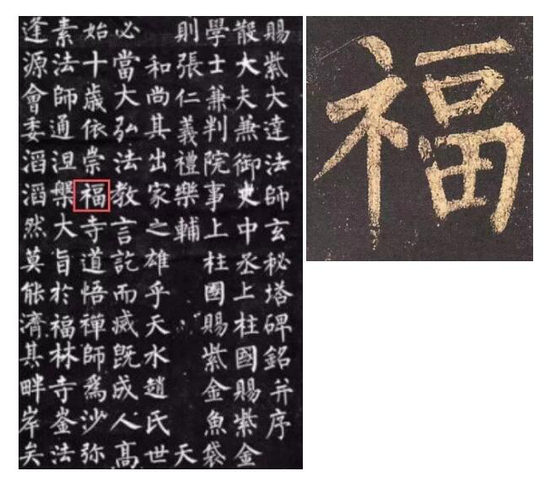 賜紫大達法師玄秘塔碑銘并序
散大夫兼御史中丞上柱國賜紫金
學士兼判院事上柱國賜紫金魚袋
則張仁義禮樂輔天
和尚其出家之雄乎天水趙氏世
必當大弘法教言訖而滅既成人高
始十歲依崇福寺道悟禪師為沙弥
素法師通涅槃大旨於福林寺崟法
逢源會委滔滔然莫能濟其畔岸矣
福